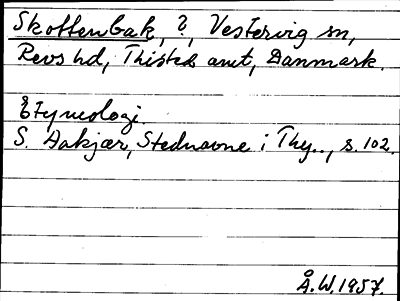 Skottenbak, ?, Vestervig sn,
Revs hd, Thisted amt, Danmark.
Etymologi.
S. Aakjær, Stednavne i Thy.., s. 102.
Å.W. 1957.